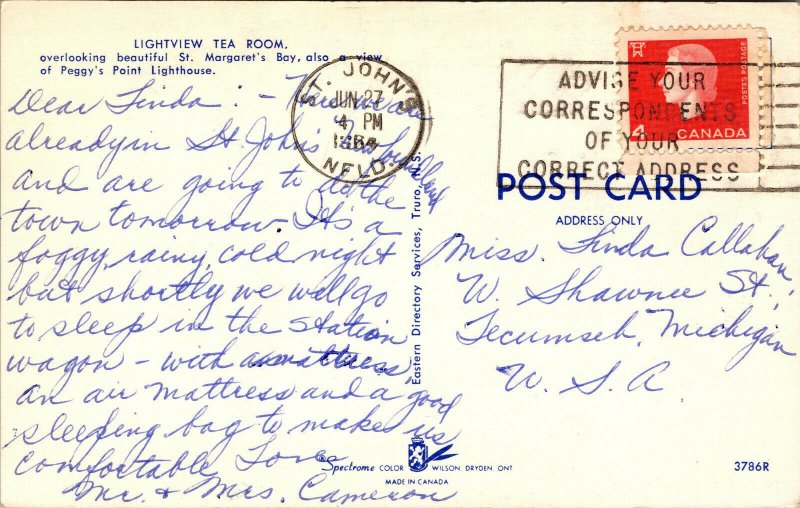 LIGHTVIEW TEA ROOM,
overlooking beautiful St. Margaret's Bay, also a view
of Peggy's Point Lighthouse.
Dear Linda: - Here we are
already in St. John's Newfoundland
and are going to do the
town tomorrow. It's a
foggy, rainy, cold night
but shortly we will go
to sleep in the station
wagon - with
an air mattress and a good
sleeping bag to make us
comfortable. Love,
Mr. & Mrs. Cameron
ST. JOHN'S
JUN 27
4 PM
1964
NFLD.
ADVISE YOUR
CORRESPONDENTS
OF YOUR
CORRECT ADDRESS
POSTES POSTAGE
4
CANADA
POST CARD
ADDRESS ONLY
Miss. Linda Callahan
W. Shawnee St.,
Tecumseh, Michigan
U. S. A
Eastern Directory Services, Truro, N.S.
Spectrome COLOR WILSON, DRYDEN ONT
MADE IN CANADA
3786R